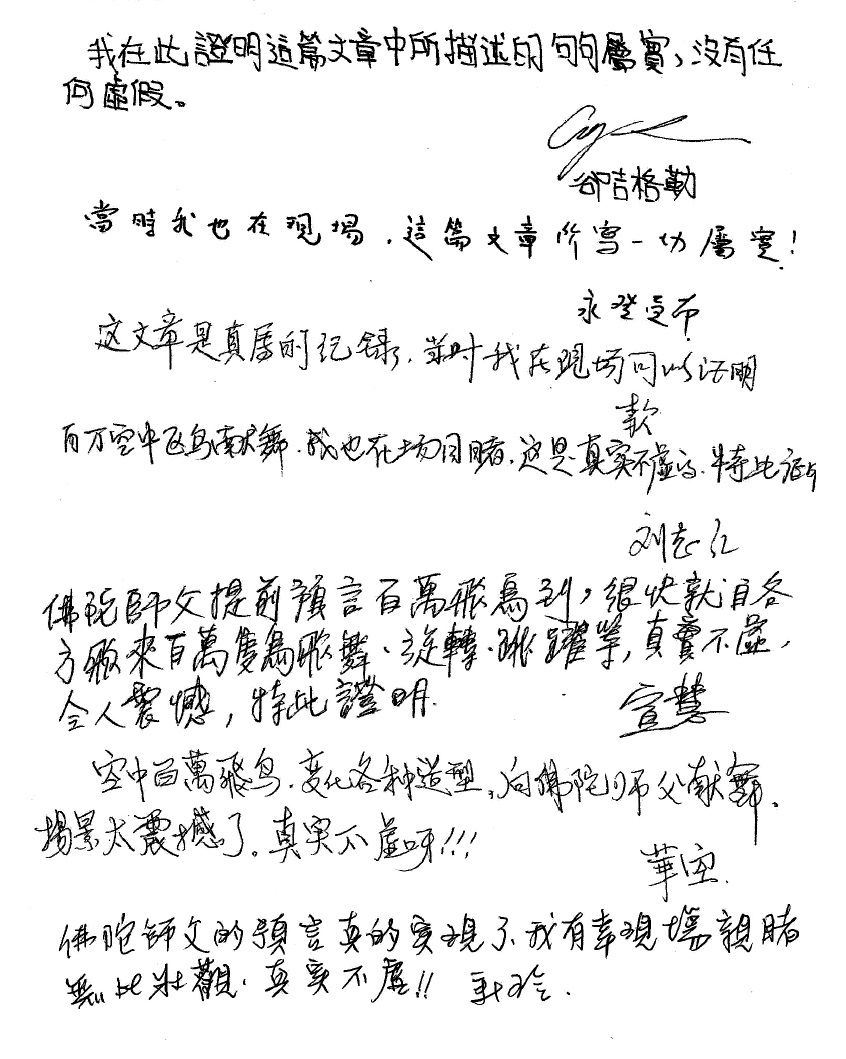 我在此證明這篇文章中所描述的句句屬實，沒有任
何虛假。
卻吉格勒
當時我也在現場，這篇文章所寫一切屬實！
永登
这文章是真实的纪录，当时我在現场可以证明
款
百万空中飞鸟献舞，我也在场目睹，这是真实不虚的，特此证明
刘志红
佛陀師父提前預言百萬飛鳥到，很快就自各
方飛來百萬隻鳥飛舞、旋轉、跳躍等，真實不虛，
令人震憾，特此證明.
宣慧
空中百萬飛鸟，变化各种造型，向佛陀师父献舞，
場景太震撼了。真実不虛呀!!!
華空.
佛陀師父的預言真的實現了，我有幸現場親睹
無比壯觀，真実不虛!!